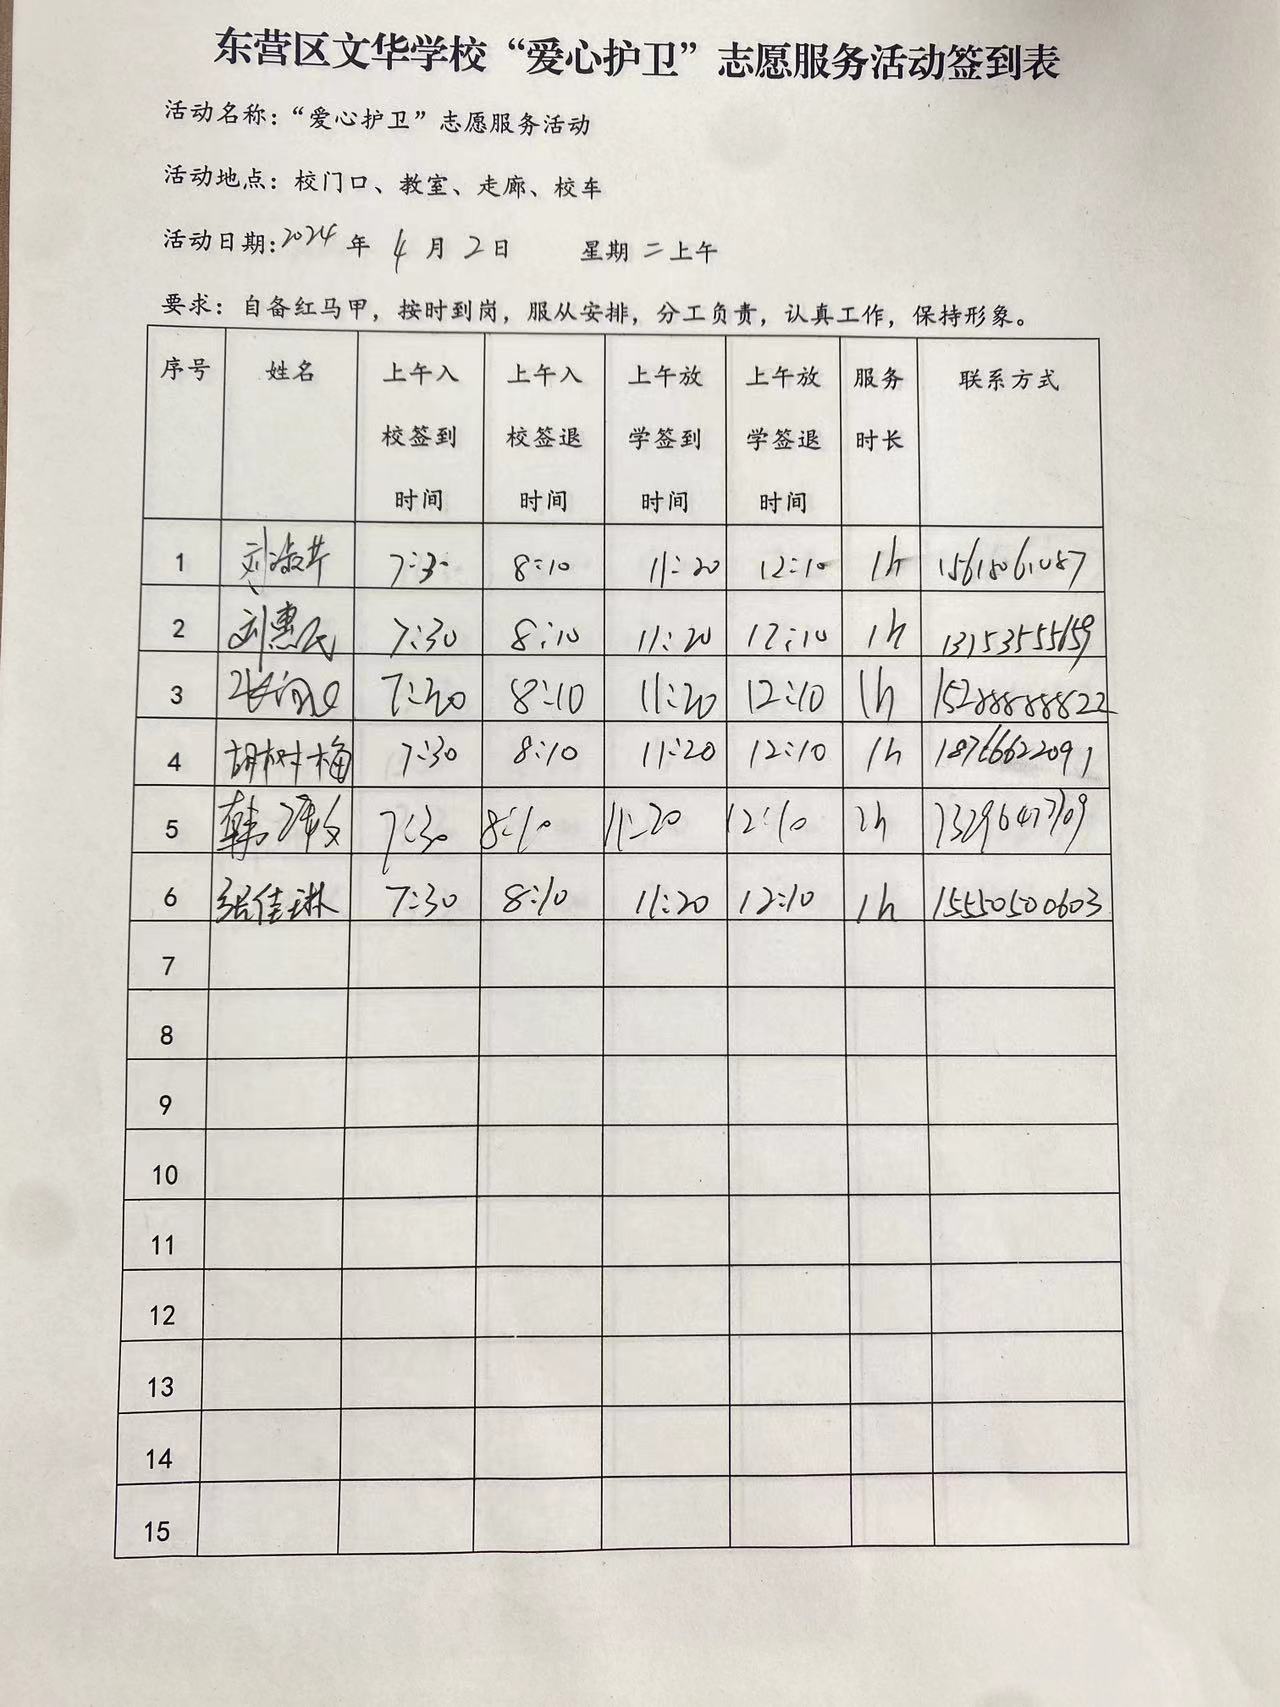 东营区文华学校“爱心护卫”志愿服务活动签到表
活动名称：“爱心护卫”志愿服务活动
活动地点：校门口、教室、走廊、校车
活动日期：2024 年 4 月 2 日 星期 二 上午
要求：自备红马甲，按时到岗，服从安排，分工负责，认真工作，保持形象。
序号 姓名 上午入校签到时间 上午入校签退时间 上午放学签到时间 上午放学签退时间 服务时长 联系方式
1 刘淑芹 7:30 8:10 11:20 12:10 1h
2 刘惠民 7:30 8:10 11:20 12:10 1h
3 8:10 11:20 12:10 1h
4 胡树梅 7:30 8:10 11:20 12:10 1h 18766622091
5 7:30 8:10 11:20 12:10
6 张佳琳 7:30 8:10 11:20 12:10 1h 15550500603
7
8
9
10
11
12
13
14
15